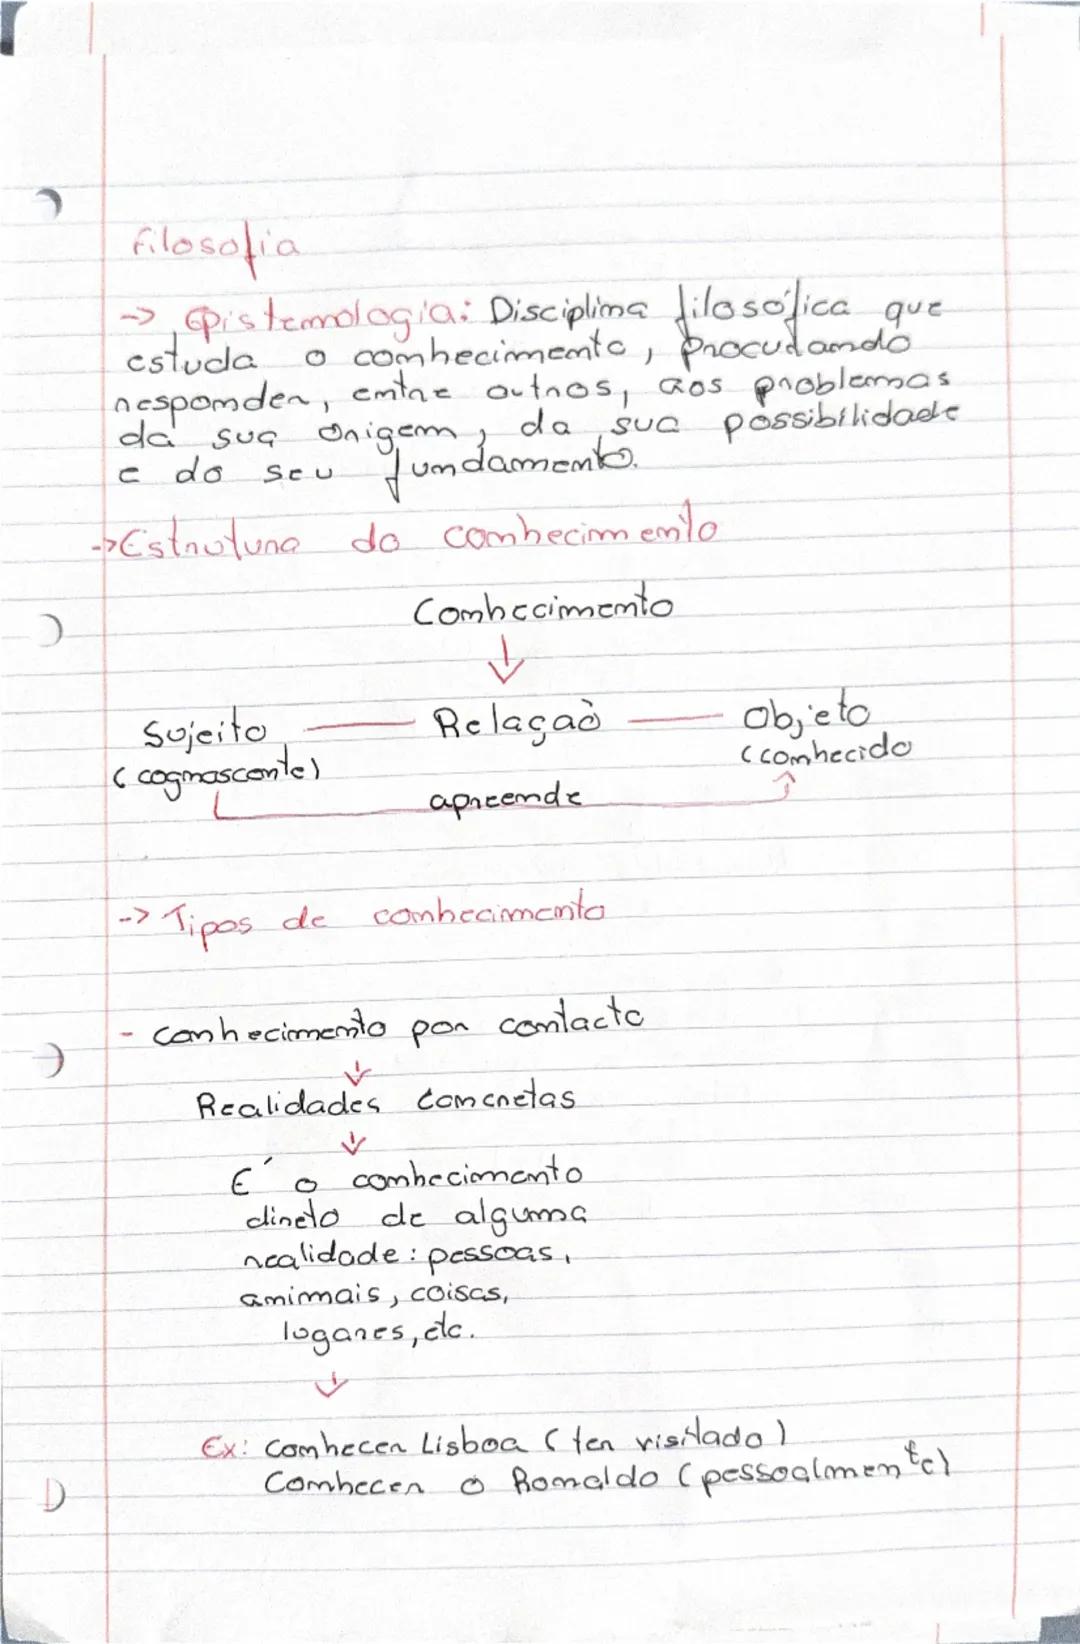 Filosofia
-> Epistemologia: Disciplina filosófica que
estuda o conhecimento, procudando
responder, entre outros, aos problemas
da sua origem, da sua possibilidade
e do seu fundamento.
->Estrutura do conhecimento
Conhecimento
Sujeito — Relação — Objeto
(cognoscente) (conhecido
apreende
-> Tipos de conhecimento
- conhecimento por contacto
Realidades concretas
É o conhecimento
direto de alguma
realidade: pessoas,
animais, coisas,
lugares, etc.
Ex: conhecer Lisboa (ter visitado)
Conhecer o Ronaldo (pessoalmente)